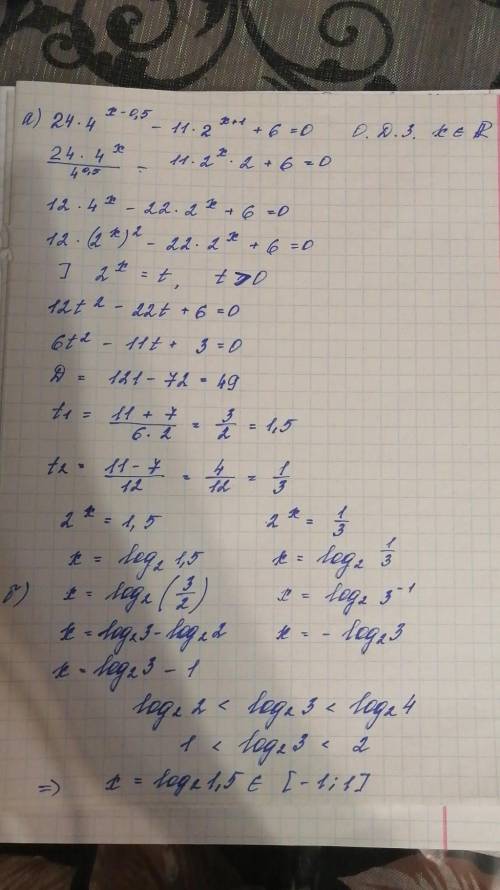 а) 24·4^(x-0,5) - 11·2^(x+1) + 6 = 0   О.Д.З. x ∈ ℝ
24·4^x / 4^0,5 - 11·2^x·2 + 6 = 0
12·4^x - 22·2^x + 6 = 0
12·(2^x)^2 - 22·2^x + 6 = 0
] 2^x = t, t > 0
12t² - 22t + 6 = 0
6t² - 11t + 3 = 0
D = 121 - 72 = 49
t1 = (11 + 7) / (6·2) = 3/2 = 1,5
t2 = (11 - 7) / 12 = 4/12 = 1/3
2^x = 1,5   2^x = 1/3
x = log₂ 1,5   x = log₂ 1/3
б) x = log₂ (3/2)   x = log₂ 3^-1
x = log₂3 - log₂2   x = - log₂3
x = log₂3 - 1
log₂ 2 < log₂ 3 < log₂ 4
1 < log₂3 < 2
=> x = log₂1,5 ∈ [-1; 1]